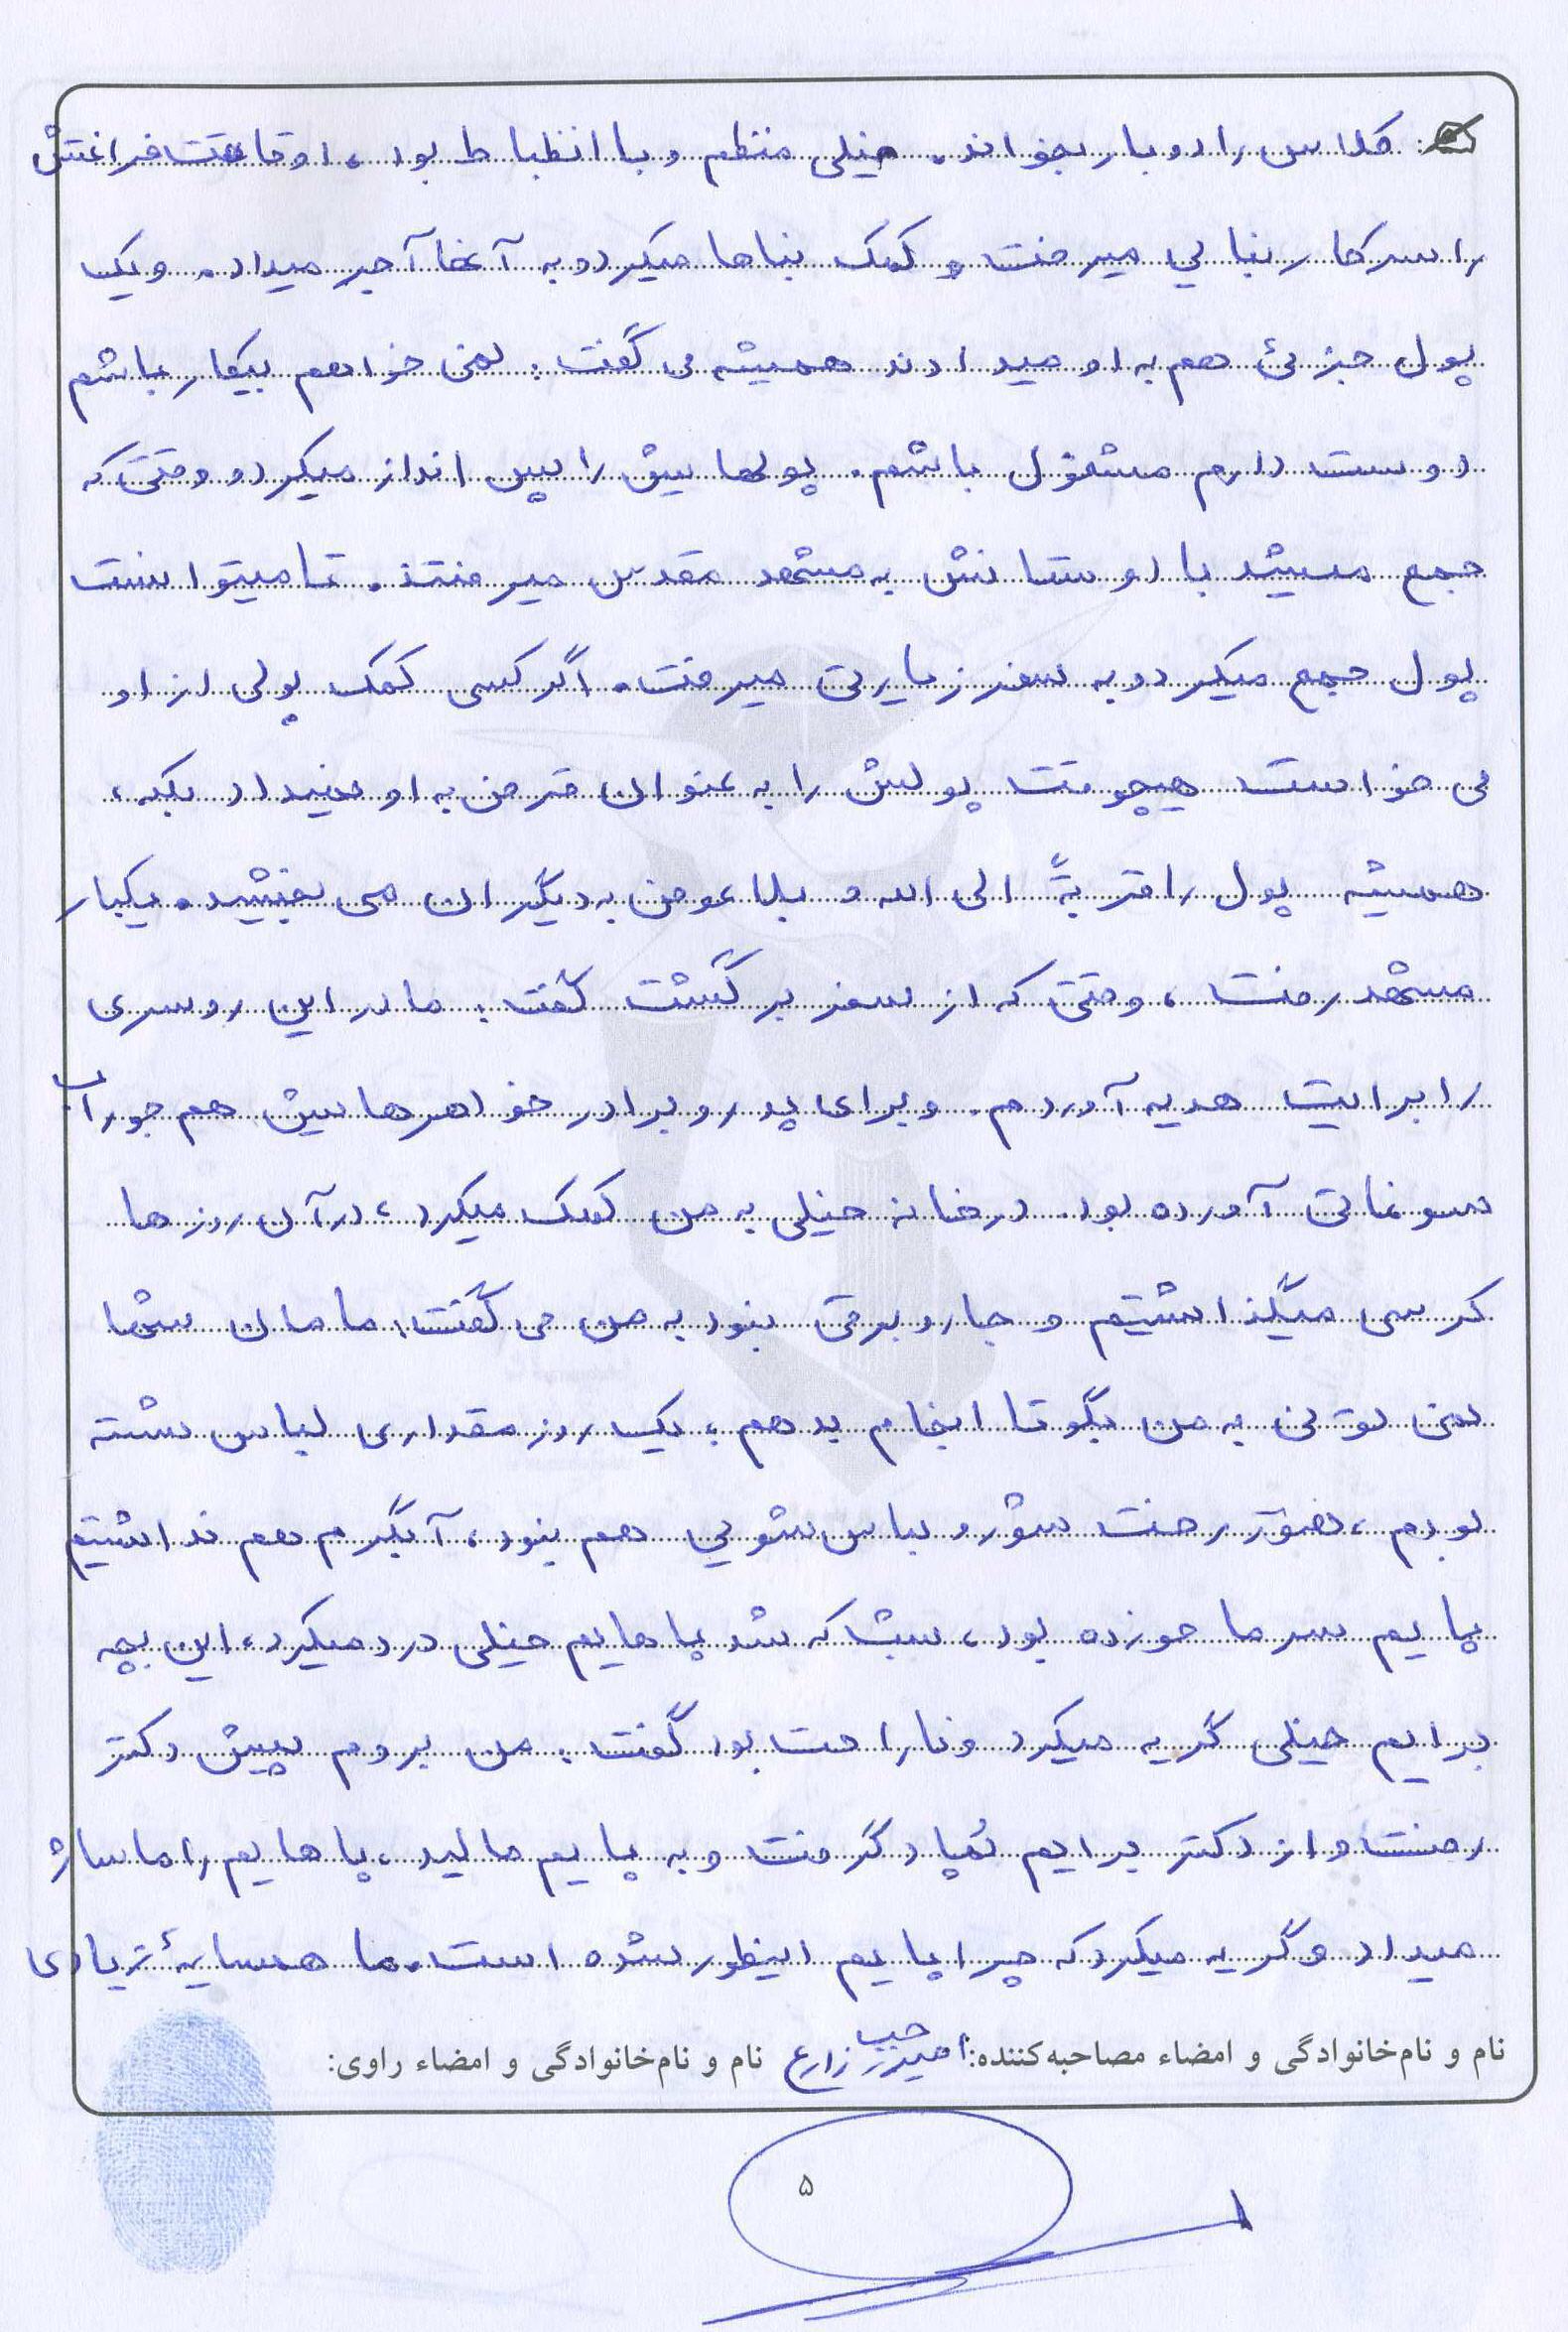 کلاس را دوبار بخواند. خیلی منظم و با انظباط بود، اوقات فراغتش
را سر کار بنایی میرفت و کمک بناها میکرد و به آنها آجر میداد. و یک
پول جزئی هم به او میدادند همیشه می گفت: نمی خواهم بیکار باشم
دوست دارم مشغول باشم. پولهایش را پس انداز میکرد و وقتی که
جمع میشد با دوستانش به مشهد مقدس میرفتند. تا میتوانست
پول جمع میکرد و به سفر زیارتی میرفت. اگر کسی کمک پولی از او
می خواست هیچوقت پولش را به عنوان قرض به او نمیداد بلکه،
همیشه پول را قربةً الی الله و بلاعوض به دیگران می بخشید. یکبار
مشهد رفت، وقتی که از سفر برگشت گفت: مادر این روسری
را برایت هدیه آوردم. و برای پدر و برادر خواهرهایش هم جوراب
سوغاتی آورده بود. در خانه خیلی به من کمک میکرد، در آن روزها
کرسی میگذاشتیم و جارو برقی نبود به من می گفت: مامان شما
نمی تونی به من بگو تا انجام بدهم، یک روز مقداری لباس شسته
بودم، هنوز رخت شور و لباس شویی هم نبود، آبگرم هم نداشتیم
پایم سرما خورده بود، شب که شد پاهایم خیلی درد میکرد، این بچه
برایم خیلی گریه میکرد و ناراحت بود گفت: من بروم پیش دکتر
رفت و از دکتر برایم پُماد گرفت و به پایم مالید، پاهایم را ماساژ
میداد و گریه میکرد که چرا پایم اینطور شده است. ما همسایهٔ زیادی
نام و نام‌خانوادگی و امضاء مصاحبه‌کننده: امیر حبیب زارع نام و نام‌خانوادگی و امضاء راوی:
۵